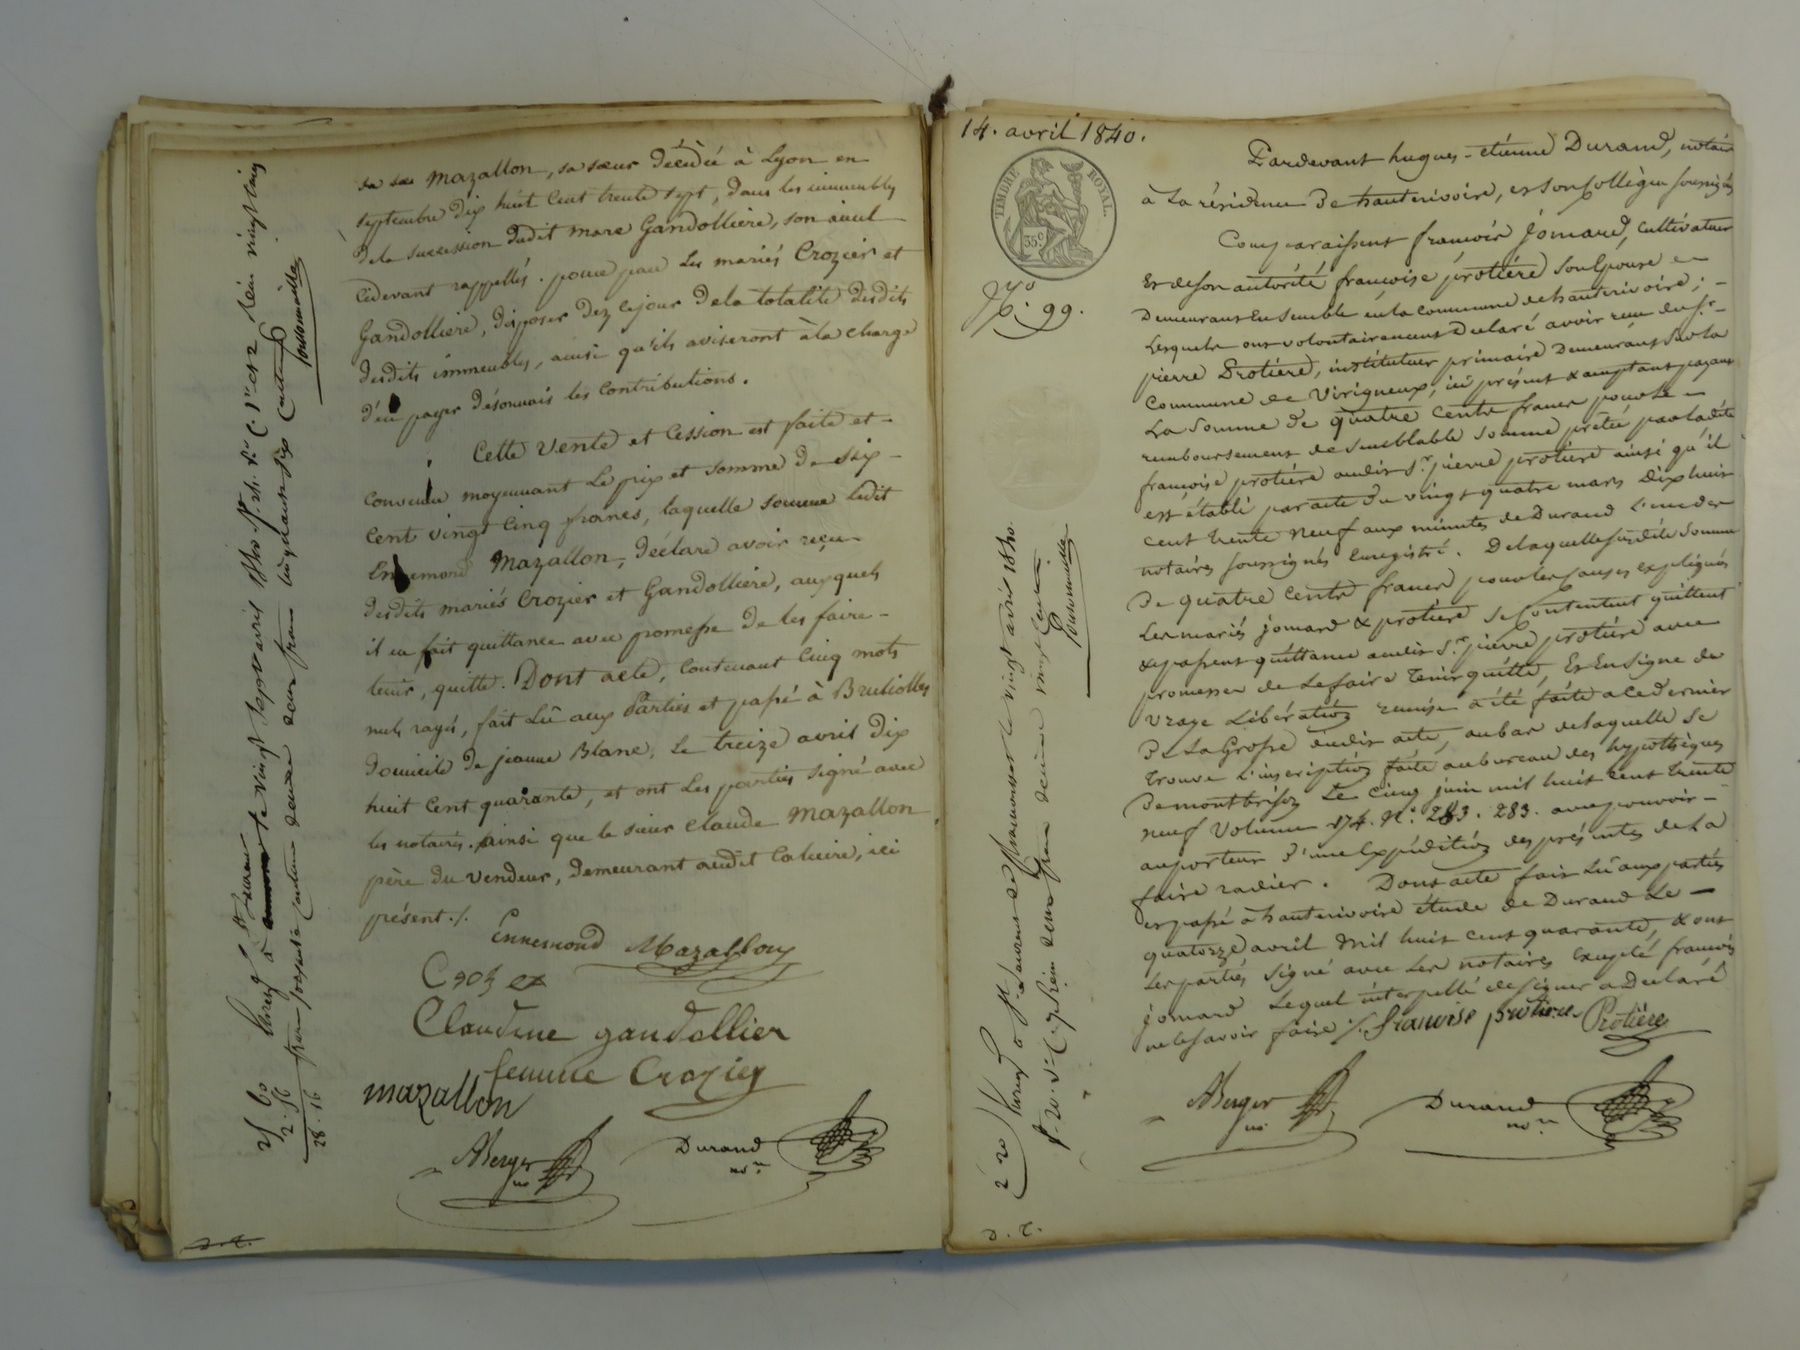 sa sœur mazallon, sa sœur décédée à Lyon en
septembre dix huit cent trente sept, dans les immeubles
de la succession dudit marc Gandollière, son aieul
cidevant rappellés. pour par les mariés Crozier et
Gandollière, disposer dez cejour de la totalité desdits
desdits immeubles, ainsi qu'ils aviseront à la charge
d'en payer désormais les contributions.
Cette vente et cession est faite et
convenue moyennant le prix et somme de six
cent vingt cinq francs, laquelle somme ledit
Ennemond Mazallon, déclare avoir reçue
desdits mariés Crozier et Gandollière, auxquels
il en fait quittance avec promesse de les faire
tenir, quitte. Dont acte, contenant cinq mots
nuls rayés, fait lû aux Parties et passé à Brullioles
domicile de jeanne Blanc, le treize avril dix
huit cent quarante, et ont les parties signé avec
les notaires. ainsi que le sieur claude Mazallon
père du vendeur, demeurant audit , ici
présent ./.
Ennemond Mazallon
Crozier
Claudine gandollier
femme Crozier
mazallon
ABerger
no
Durand
no.re
25 60
2. 56
28. 16
14. avril 1840.
TIMBRE ROYAL.
35c
No. 99.
Pardevant hugues-étienne Durand, notaire
à la résidence de hauterivoire, et son Collègue soussignés
Comparaissent françois jomard, cultivateur
et de son autorité françoise protière son Epouse
demeurant Ensemble en la commune de hauterivoire;
Lesquels ont volontairement Declaré avoir reçu du sr.
pierre Protière, instituteur primaire demeurant sur la
commune de Virigneux, ici présent & comptant payant
La somme de quatre cents francs pour le
remboursement de semblable somme prêtée par ladite
françoise protière audit sr. pierre protière ainsi qu'il
est établi par acte du vingt quatre mars Dix huit
cent trente neuf aux minutes de Durand L'un des
notaires soussignés Enregistré. De laquelle susdite somme
De quatre cents francs pour les causes expliquées
Les mariés jomard & protière se Contentent quittent
& passent quittance audit sr. pierre protière avec
promesse de le faire Tenir quitte, Et En signe de
vraye Libération remise a été faite a ce dernier
De La Grosse dudit acte, au bas de laquelle se
trouve L'inscription faite au bureau des hypothèques
De montbrison Le cinq juin mil huit cent trente
neuf volume 174. N°. 283. 283. avec pouvoir
au porteur d'une Expédition des présentes de La
faire radier. Dont acte fait Lû aux parties
et passé à hauterivoire étude de Durand Le
quatorze avril mil huit cent quarante, & ont
Les parties signé avec Les notaires Excepté françois
jomard Lequel interpellé de signer a Declaré
ne le savoir faire ./. francoise protiere Protière
ABerger
no.
Durand
no.re
D. C.